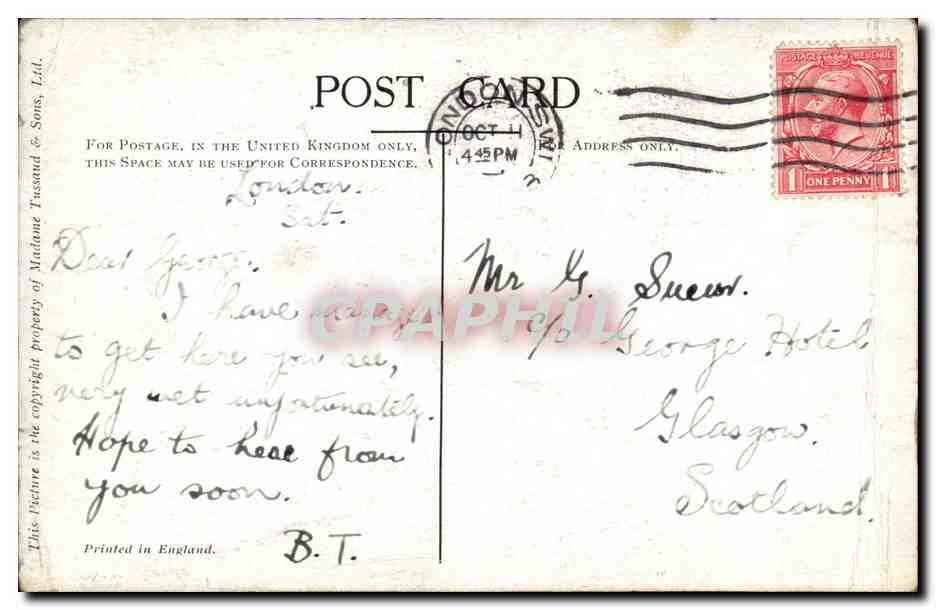 POST CARD
FOR POSTAGE, IN THE UNITED KINGDOM ONLY,
THIS SPACE MAY BE USED FOR CORRESPONDENCE.
ADDRESS ONLY.
LONDON. S.W.1
OCT 11
4 45 PM
POSTAGE REVENUE
1 ONE PENNY 1
London.
Sat.
Dear George.
I have
to get here you see,
very wet unfortunately.
Hope to hear from
you soon.
B.T.
Mr G.
c/o George Hotel
Glasgow.
Scotland.
Printed in England.
This Picture is the copyright property of Madame Tussaud & Sons, Ltd.
CPAPHIL